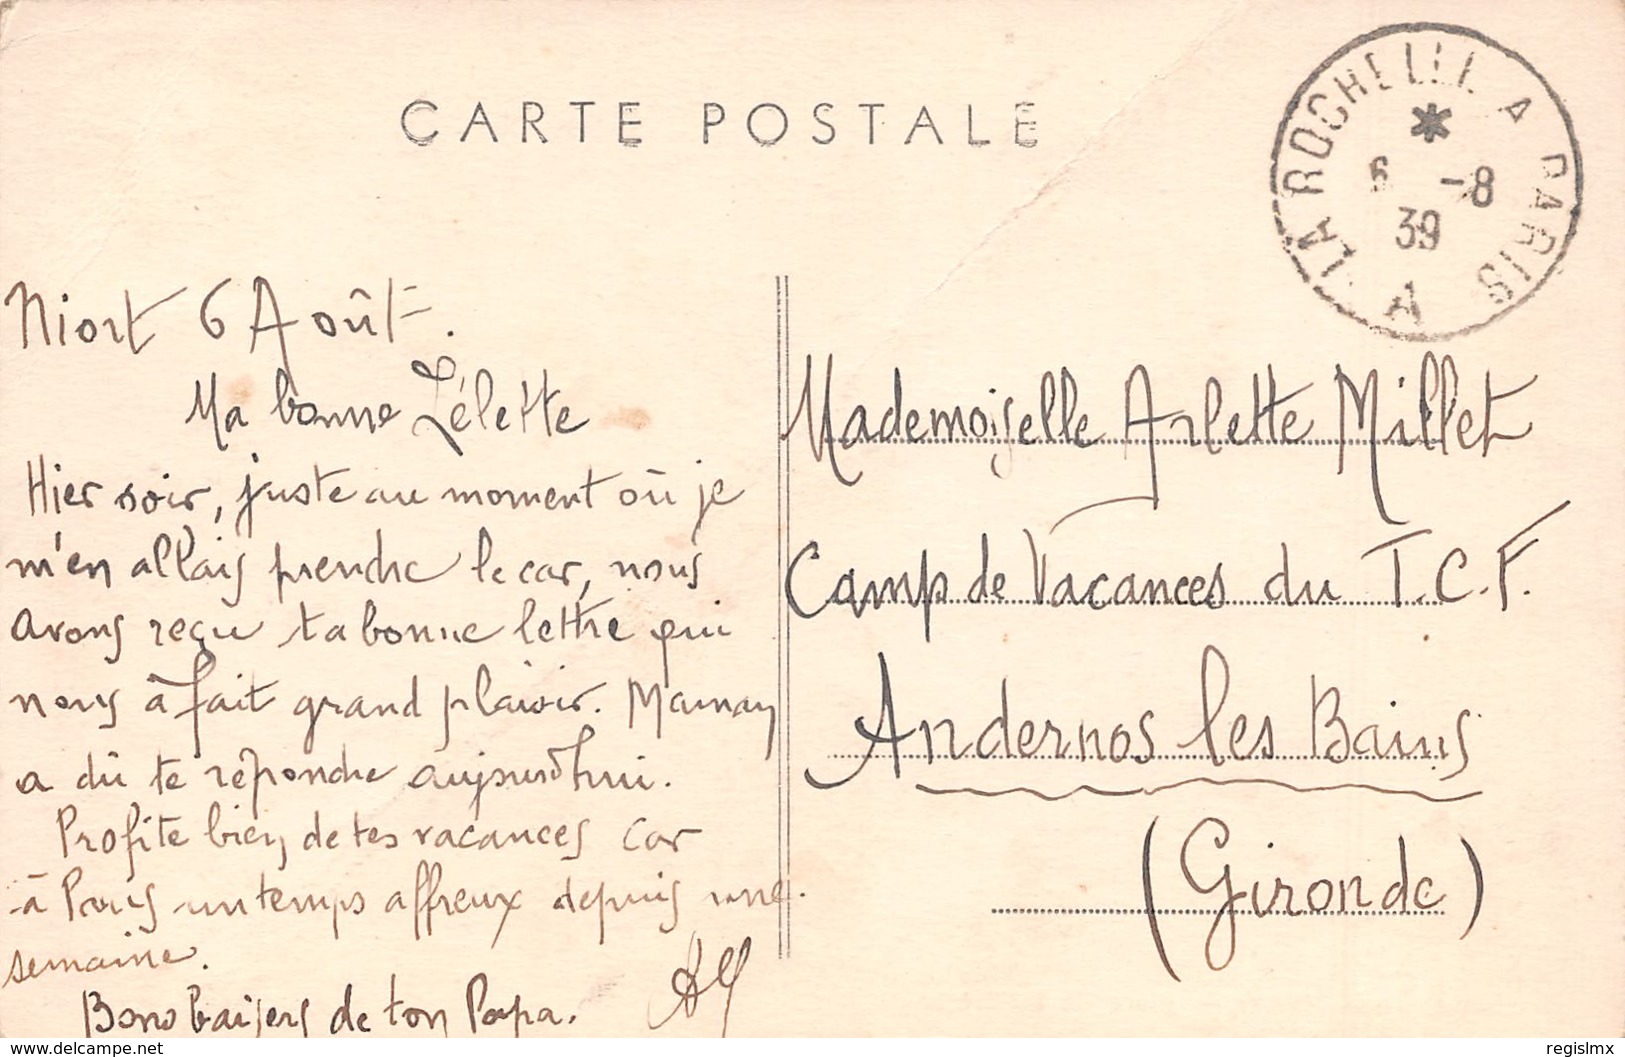 CARTE POSTALE
LA ROCHELLE A PARIS
6 -8
39
A
Niort 6 Août.
Ma bonne Lélette
Hier soir, juste au moment où je
m'en allais prendre le car, nous
avons reçu ta bonne lettre qui
nous à fait grand plaisir. Maman
a dû te répondre aujourd'hui.
Profite bien de tes vacances car
à Paris un temps affreux depuis une
semaine.
Bons baisers de ton Papa.
Mademoiselle Arlette Millet
Camp de Vacances du T.C.F.
Andernos les Bains
(Gironde)
www.delcampe.net
regislmx